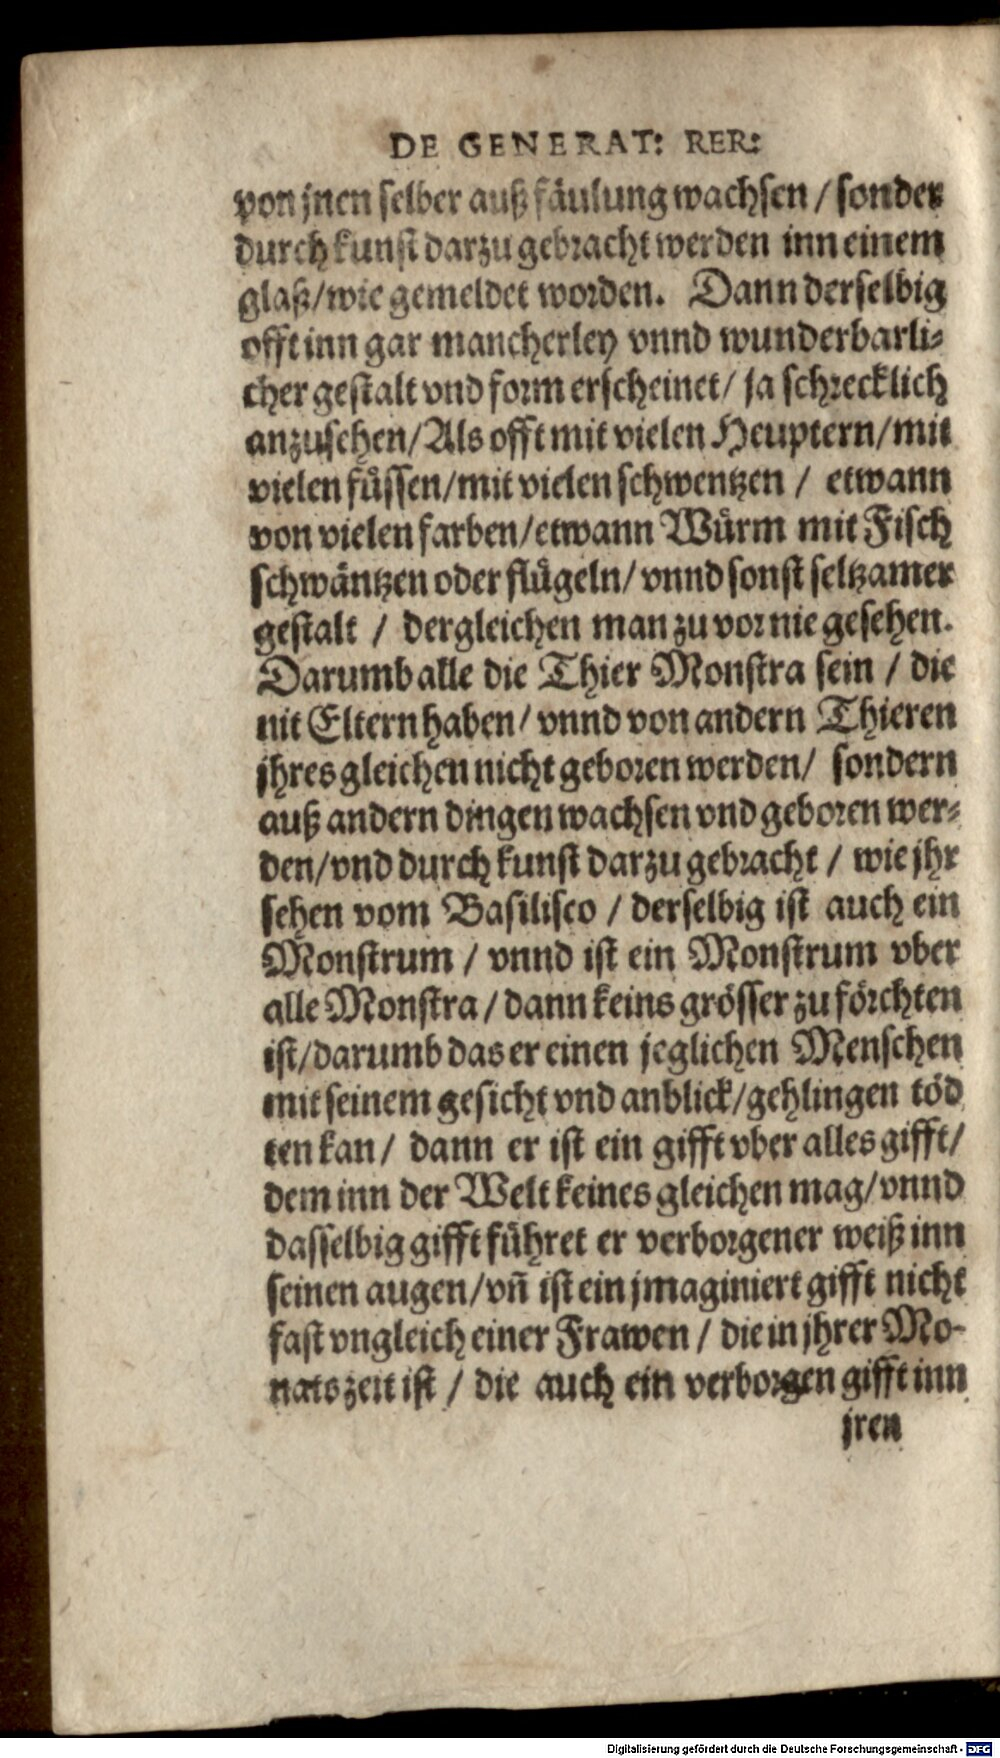 DE GENERAT: RER:
von jnen selber auß fäulung wachsen / sonder
durch kunst darzu gebracht werden inn einem
glaß/wie gemeldet worden. Dann derselbig
offt inn gar mancherley vnnd wunderbarli-
cher gestalt vnd form erscheinet/ ja schrecklich
anzusehen/Als offt mit vielen Heuptern/mit
vielen füssen/mit vielen schwentzen / etwann
von vielen farben/etwann Würm mit Fisch
schwäntzen oder flügeln/ vnnd sonst seltzamer
gestalt / dergleichen man zu vor nie gesehen.
Darumb alle die Thier Monstra sein / die
nit Eltern haben/ vnnd von andern Thieren
jhres gleichen nicht geboren werden/ sondern
auß andern dingen wachsen vnd geboren wer-
den/vnd durch kunst darzu gebracht / wie jhr
sehen vom Basilisco / derselbig ist auch ein
Monstrum / vnnd ist ein Monstrum vber
alle Monstra / dann keins grösser zu förchten
ist/darumb das er einen jeglichen Menschen
mit seinem gesicht vnd anblick/gehlingen töd
ten kan/ dann er ist ein gifft vber alles gifft/
dem inn der Welt keines gleichen mag/vnnd
dasselbig gifft führet er verborgener weiß inn
seinen augen/vn̄ ist ein jmaginiert gifft nicht
fast vngleich einer Frawen / die in jhrer Mo-
nats zeit ist / die auch ein verborgen gifft inn
jren
Digitalisierung gefördert durch die Deutsche Forschungsgemeinschaft - DFG